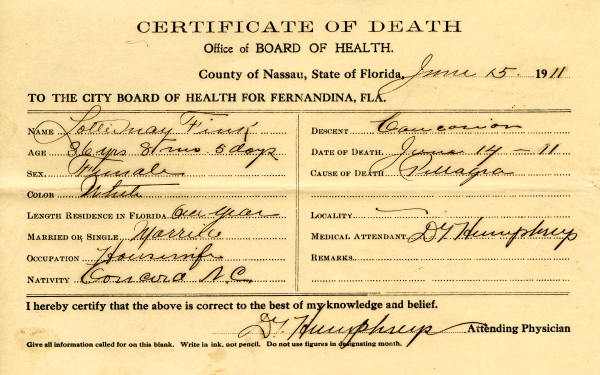 CERTIFICATE OF DEATH
Office of BOARD OF HEALTH.
County of Nassau, State of Florida, June 15. 1911
TO THE CITY BOARD OF HEALTH FOR FERNANDINA, FLA.
NAME Lottie May Fink
AGE 36 yrs 8 mo 5 days
SEX. Female
COLOR White
LENGTH RESIDENCE IN FLORIDA One year
MARRIED OR SINGLE Married
OCCUPATION Housewife
NATIVITY Concord N.C.
DESCENT Caucasion
DATE OF DEATH June 14 - 11
CAUSE OF DEATH Pellagra
LOCALITY
MEDICAL ATTENDANT D.T. Humphreys
REMARKS
I hereby certify that the above is correct to the best of my knowledge and belief.
D.T. Humphreys Attending Physician
Give all information called for on this blank. Write in ink, not pencil. Do not use figures in designating month.